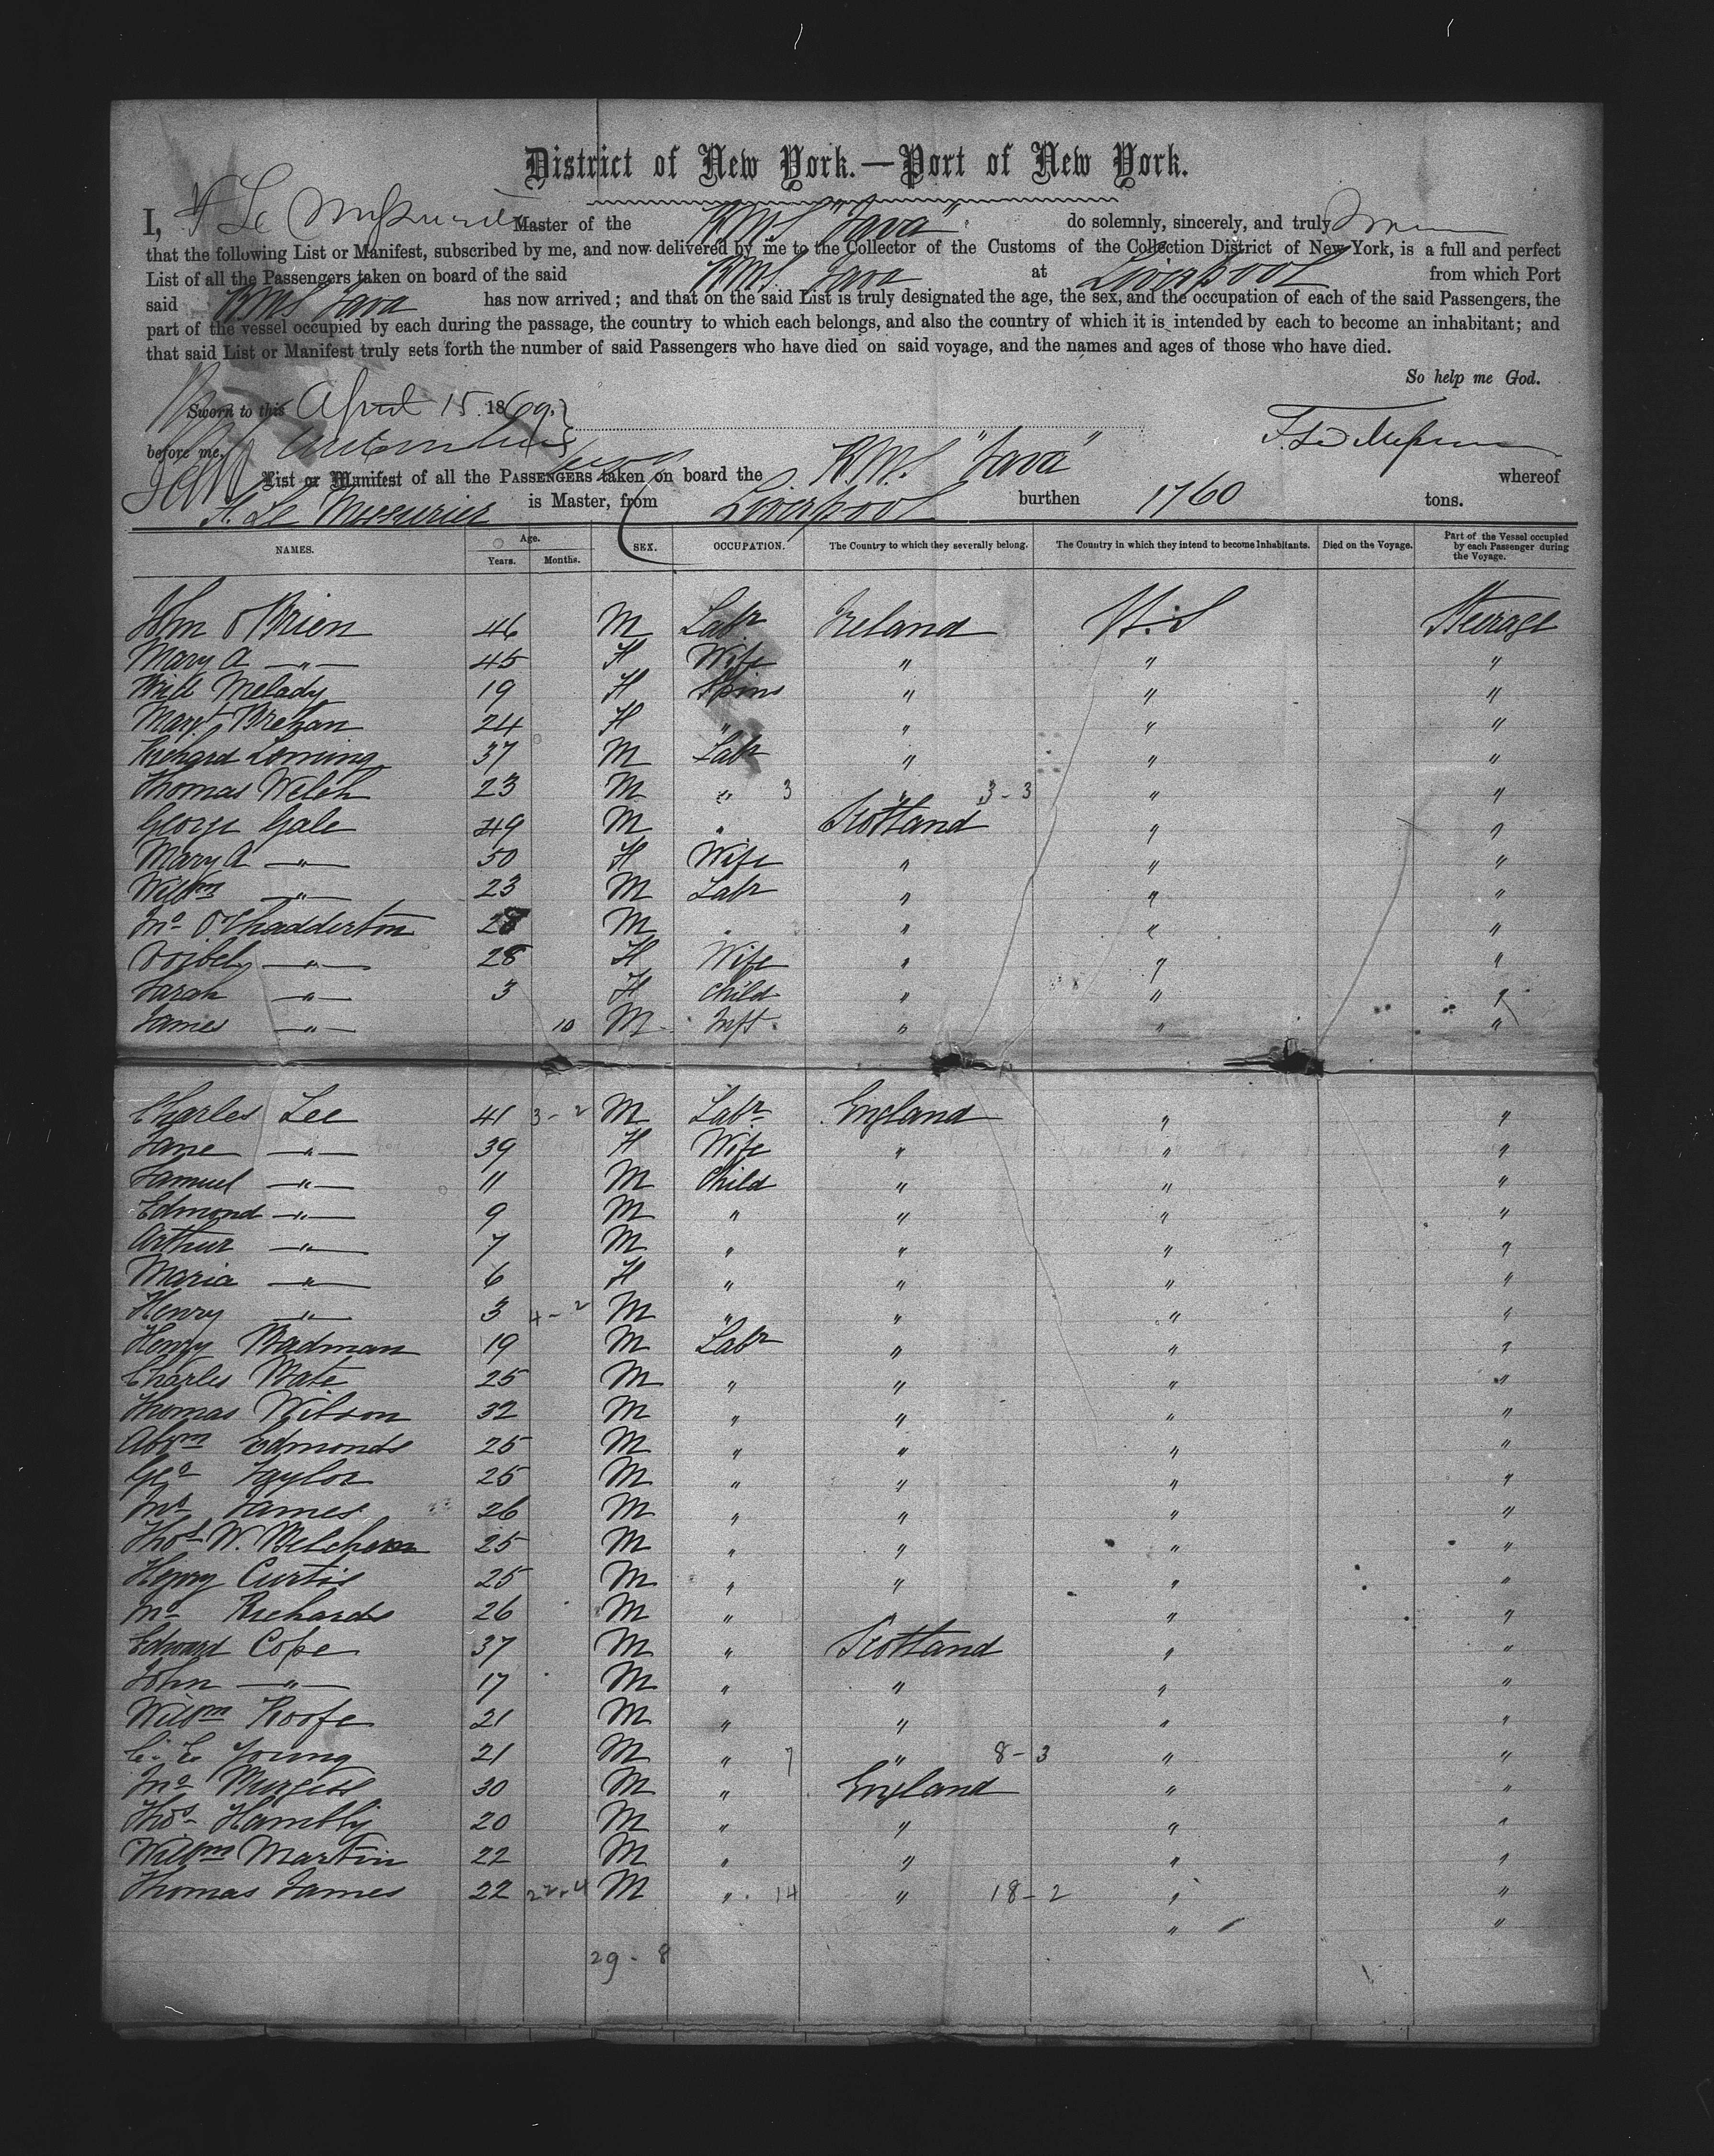 District of New York.—Port of New York.
I, F Le Messurier Master of the RMS "Java" do solemnly, sincerely, and truly
that the following List or Manifest, subscribed by me, and now delivered by me to the Collector of the Customs of the Collection District of New York, is a full and perfect
List of all the Passengers taken on board of the said RMS Java at Liverpool from which Port
said RMS Java has now arrived; and that on the said List is truly designated the age, the sex, and the occupation of each of the said Passengers, the
part of the vessel occupied by each during the passage, the country to which each belongs, and also the country of which it is intended by each to become an inhabitant; and
that said List or Manifest truly sets forth the number of said Passengers who have died on said voyage, and the names and ages of those who have died.
So help me God.
Sworn to this April 15. 1869.
before me,
List or Manifest of all the PASSENGERS taken on board the RMS "Java" whereof
F. Le Messurier is Master, from Liverpool burthen 1760 tons.
NAMES. Age. Years. Months. SEX. OCCUPATION. The Country to which they severally belong. The Country in which they intend to become Inhabitants. Died on the Voyage. Part of the Vessel occupied by each Passenger during the Voyage.
John O Brien 46 M Labr Ireland U.S Steerage
Mary A —"— 45 F Wife " " "
Melady 19 F Spins " " "
Margt Brehan 24 F " " " "
Richard 37 M Labr " " "
Thomas Welch 23 M " 3 " 3-3 " "
George Gale 49 M " Scotland " "
Mary A —"— 50 F Wife " " "
Willm —"— 23 M Labr " " "
Jno O'Chadderton 28 M " " " "
—"— 28 F Wife " " "
Sarah —"— 3 F Child " " "
James —"— 10 M Inft " " "
Charles Lee 41 3-2 M Labr England " "
Jane —"— 39 F Wife " " "
Samuel —"— 11 M Child " " "
Edmond —"— 9 M " " " "
Arthur —"— 7 M " " " "
Maria —"— 6 F " " " "
Henry —"— 3 4-2 M " " " "
Henry Badman 19 M Labr " " "
Charles Bate 25 M " " " "
Thomas Wilson 32 M " " " "
Abrm Edmonds 25 M " " " "
Geo Taylor 25 M " " " "
Jno James 26 M " " " "
Thos W. Belcham 25 M " " " "
Henry Curtis 25 M " " " "
Jno Richards 26 M " " " "
Edward Cope 37 M " Scotland " "
John —"— 17 M " " " "
Willm Roofe 21 M " " " "
C. E Young 21 M " 7 " 8-3 " "
Jno Burgess 30 M " England " "
Thos Hambly 20 M " " " "
Willm Martin 22 M " " " "
Thomas James 22 22-4 M " 14 " 18-2 " "
" "
29-8